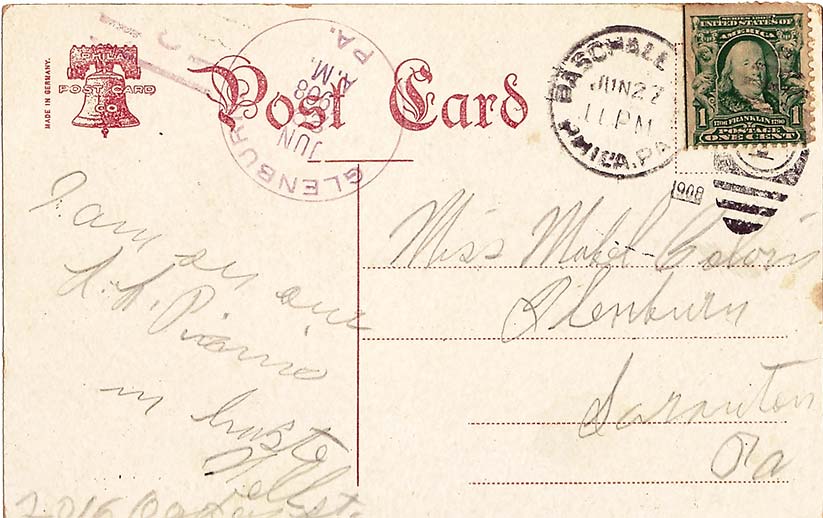 MADE IN GERMANY.
PHILA.
POST CARD
CO
Post Card
GLENBURN
PA.
JUN
1908
A.M.
PASCHALL
JUN 27
11 PM
PHILA. PA.
1908
SERIES 1902
UNITED STATES OF
AMERICA
1706 FRANKLIN 1790
POSTAGE
1 ONE CENT 1
I am on our
S.S. Picnic
in haste
Miss Mabel
Glenburn
Scranton
Pa